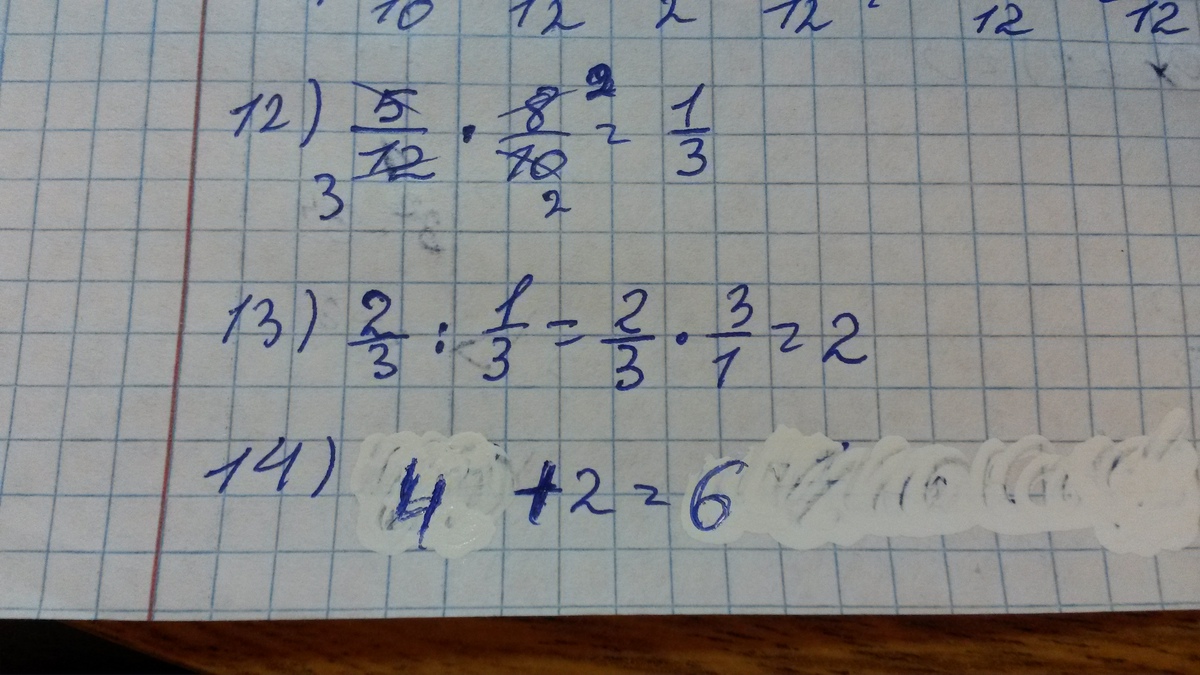 10 12 2 12 12 12
12) 5/12 · 8/10 = 1/3
3 2 2
13) 2/3 : 1/3 = 2/3 · 3/1 = 2
14) 4 + 2 = 6